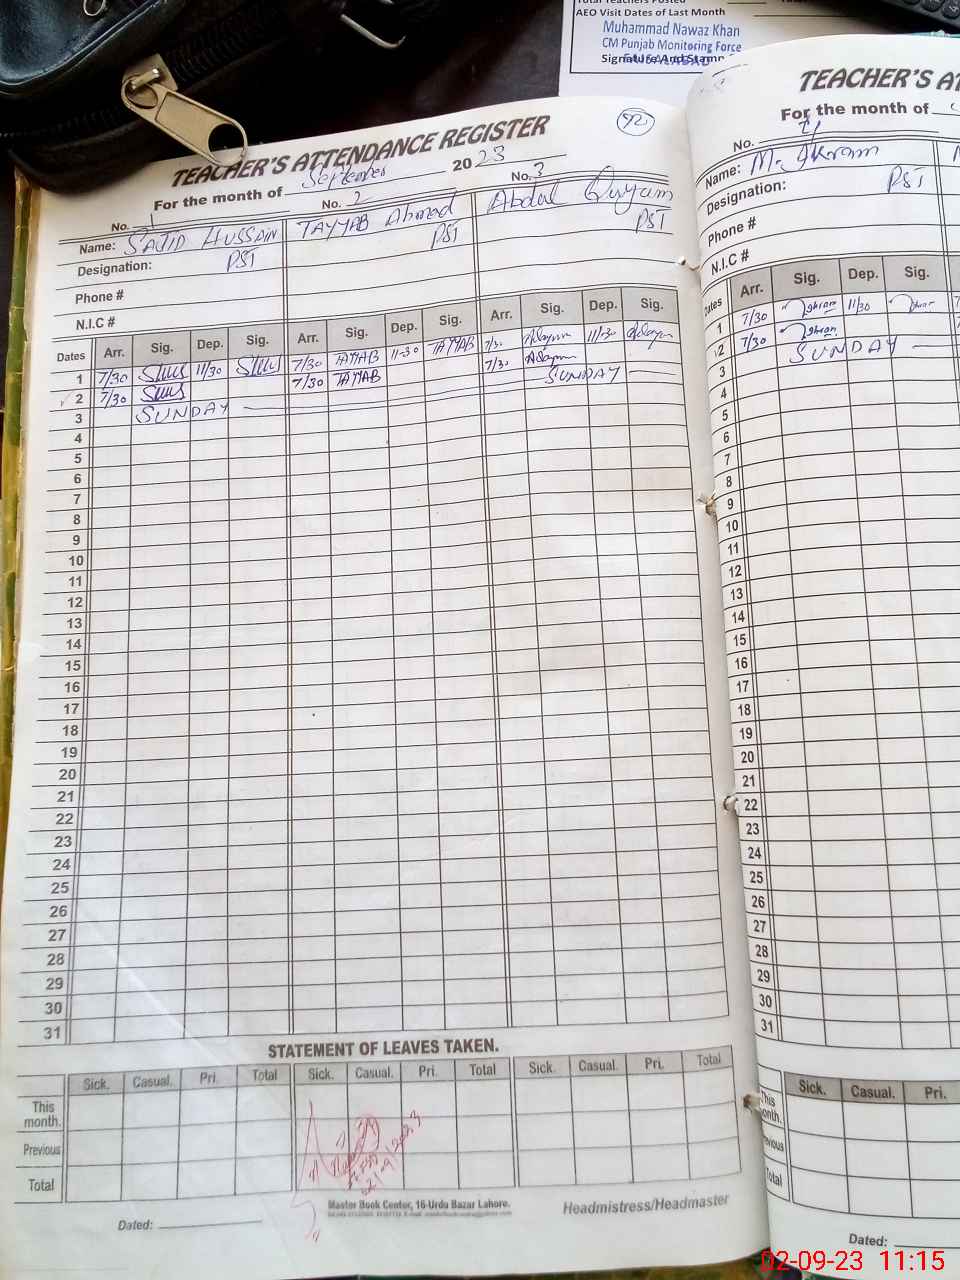 Total Teachers Posted
AEO Visit Dates of Last Month
Muhammad Nawaz Khan
CM Punjab Monitoring Force
FAISALABAD
Signature And Stamp
92
TEACHER'S ATTENDANCE REGISTER
For the month of September 2023
No. 1 No. 2 No. 3
Name: SAJID HUSSAIN TAYYAB Ahmad Abdul Quyum
Designation: PST PST PST
Phone #
N.I.C #
Dates Arr. Sig. Dep. Sig. Arr. Sig. Dep. Sig. Arr. Sig. Dep. Sig.
1 7/30 11/30 7/30 TAYYAB 11-30 TAYYAB 7/30 11/30
2 7/30 7/30 TAYYAB 7/30
3 SUNDAY SUNDAY
4
5
6
7
8
9
10
11
12
13
14
15
16
17
18
19
20
21
22
23
24
25
26
27
28
29
30
31
STATEMENT OF LEAVES TAKEN.
Sick. Casual. Pri. Total Sick. Casual. Pri. Total Sick. Casual. Pri. Total
This month.
Previous
Total
2/9/2023
Master Book Center, 16-Urdu Bazar Lahore.
Dated: Headmistress/Headmaster
TEACHER'S AT
For the month of
No. 4
Name: M. Ikram
Designation: PST
Phone #
N.I.C #
Dates Arr. Sig. Dep. Sig.
1 7/30 Ikram 11/30 Ikram
2 7/30 Ikram
3 SUNDAY
4
5
6
7
8
9
10
11
12
13
14
15
16
17
18
19
20
21
22
23
24
25
26
27
28
29
30
31
Sick. Casual. Pri.
This month.
Previous
Total
Dated:
02-09-23 11:15